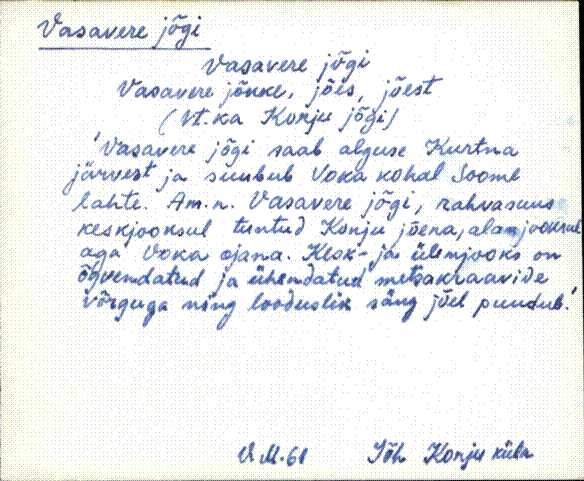 Vasavere jõgi
Vasavere jõgi
Vasavere jõkke, jões, jõest
(Vt. ka Konju jõgi)
'Vasavere jõgi saab alguse Kurtna
järvest ja suubub Voka kohal Soome
lahte. Am. n. Vasavere jõgi, rahvasuus
keskjooksul tuntud Konju jõena, alamjooksul
aga Voka ojana. Kesk- ja ülemjooks on
õgvendatud ja ühendatud metsakraavide
võrguga ning looduslik säng jõel puudub.'
V.M.-61 Jõh Konju küla